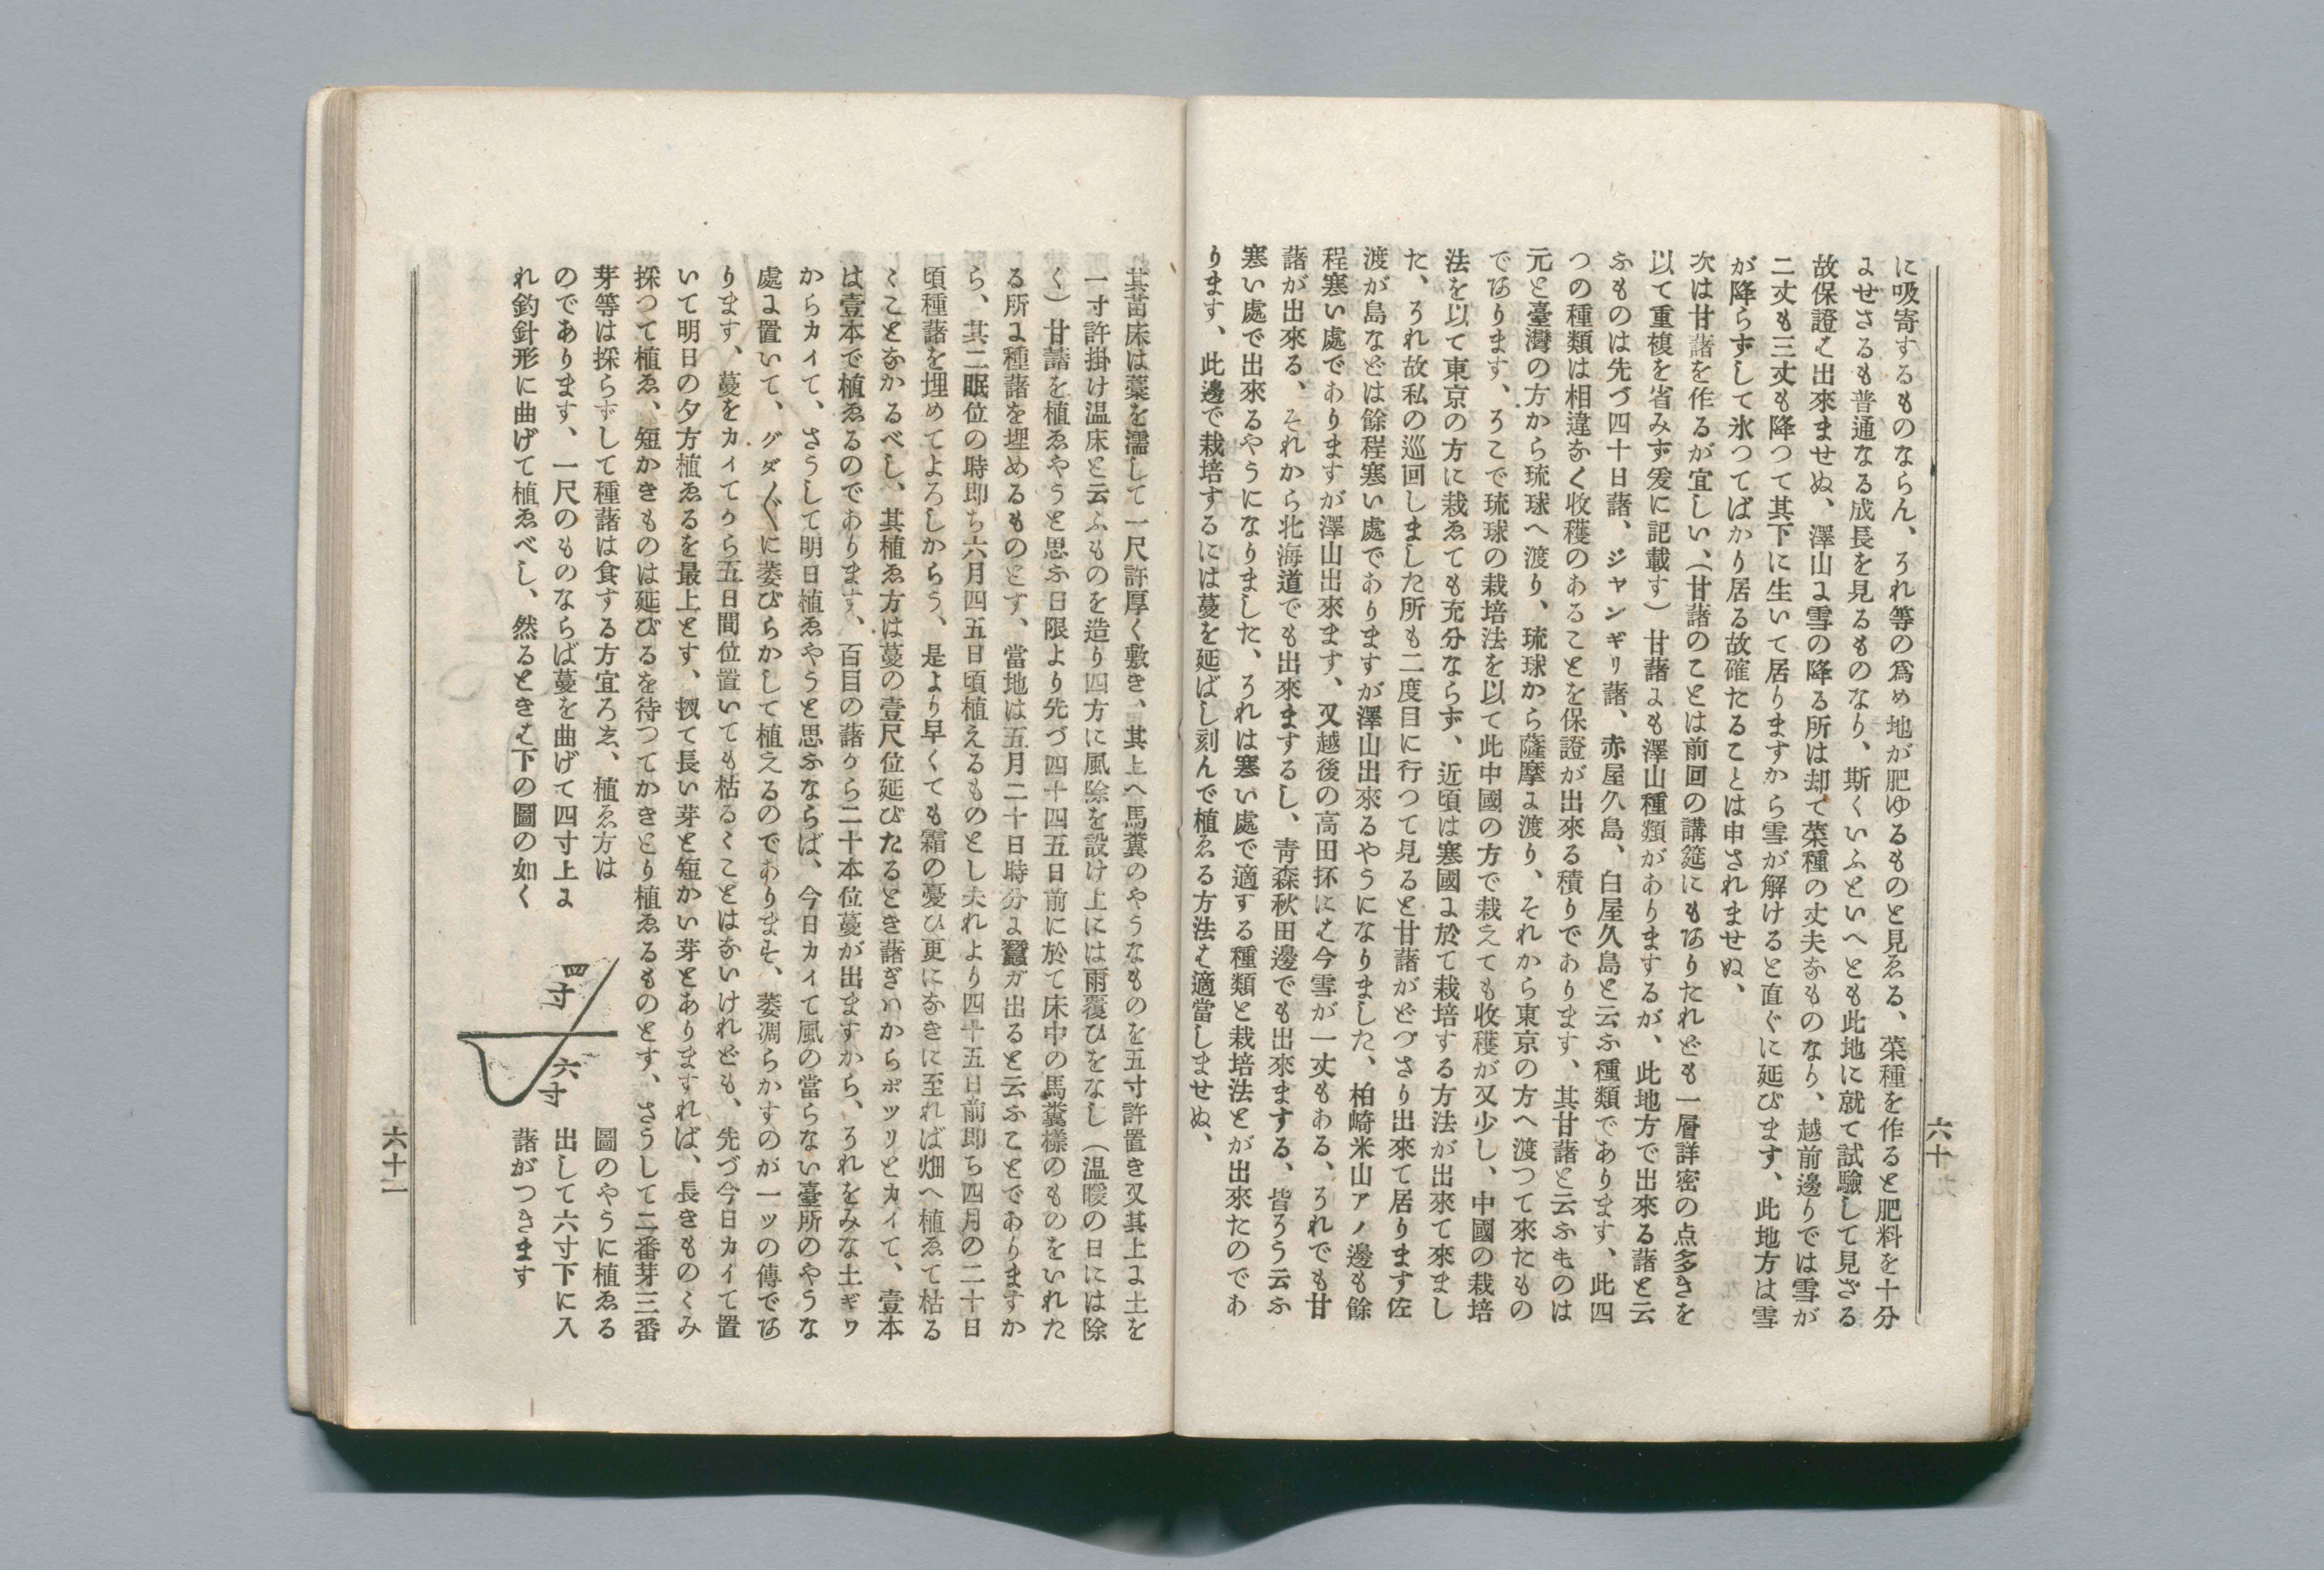 六十
に吸寄するものならん、それ等の爲め地が肥ゆるものと見ゑる、菜種を作ると肥料を十分
ませさるも普通なる成長を見るものなり、斯くいふといへとも此地に就て試驗して見ざる
故保證は出來ませぬ、澤山に雪の降る所は却て菜種の丈夫なものなり、越前邊りでは雪が
二丈も三丈も降つて其下に生いて居りますから雪が解けると直ぐに延びます、此地方は雪
が降らずして氷つてばかり居る故確たることは申されませぬ、
次は甘藷を作るが宜しい、(甘藷のことは前回の講筵にもありたれども一層詳密の点多きを
以て重複を省みず爰に記載す)甘藷にも澤山種類がありまするが、此地方で出來る藷と云
ふものは先づ四十日藷、ジャンギリ藷、赤屋久島、白屋久島と云ふ種類であります、此四
つの種類は相違なく收穫のあることを保證が出來る積りであります、其甘藷と云ふものは
元と臺灣の方から琉球へ渡り、琉球から薩摩に渡り、それから東京の方へ渡つて來たもの
であります、そこで琉球の栽培法を以て此中國の方で栽えても收穫が又少し、中國の栽培
法を以て東京の方に栽ゑても充分ならず、近頃は寒國に於て栽培する方法が出來て來まし
た、それ故私の巡回しました所も二度目に行つて見ると甘藷がどつさり出來て居ります佐
渡が島などは餘程寒い處でありますが澤山出來るやうになりました、柏崎米山アノ邊も餘
程寒い處でありますが澤山出來ます、又越後の高田抔には今雪が一丈もある、それでも甘
藷が出來る、それから北海道でも出來まするし、青森秋田邊でも出來まする、皆そう云ふ
寒い處で出來るやうになりました、それは寒い處で適する種類と栽培法とが出來たのであ
ります、此邊で栽培するには蔓を延ばし刻んで植ゑる方法は適當しませぬ、
其苗床は藁を濡して一尺許厚く敷き、其上へ馬糞のやうなものを五寸許置き又其上に土を
一寸許掛け温床と云ふものを造り四方に風除を設け上には雨覆ひをなし(温暖の日には除
く)甘藷を植ゑやうと思ふ日限より先づ四十四五日前に於て床中の馬糞樣のものをいれた
る所に種藷を埋めるものとす、當地は五月二十日時分に蠶ガ出ると云ふことでありますか
ら、其二眠位の時即ち六月四五日頃植えるものとし夫れより四十五日前即ち四月の二十日
頃種藷を埋めてよろしからう、是より早くても霜の憂ひ更になきに至れば畑へ植ゑて枯る
ゝことなかるべし、其植ゑ方は蔓の壹尺位延びたるとき藷ぎいからポツリとカイて、壹本
は壹本で植ゑるのであります、百目の藷から二十本位蔓が出ますから、それをみな土ギワ
からカイて、さうして明日植ゑやうと思ふならば、今日カイて風の當らない臺所のやうな
處に置いて、グダ〱に萎びらかして植えるのでありませ、萎凋らかすのが一ッの傳であ
ります、蔓をカイてから五日間位置いても枯るゝことはないけれども、先づ今日カイて置
いて明日の夕方植ゑるを最上とす、扨て長い芽と短かい芽とありますれば、長きものゝみ
採つて植ゑ、短かきものは延びるを待つてかきとり植ゑるものとす、さうして二番芽三番
芽等は採らずして種藷は食する方宜ろゑ、植ゑ方は
のであります、一尺のものならば蔓を曲げて四寸上に
れ釣針形に曲げて植ゑべし、然るときは下の圖の如く
四寸
六寸
圖のやうに植ゑる
出して六寸下に入
藷がつきます
六十一